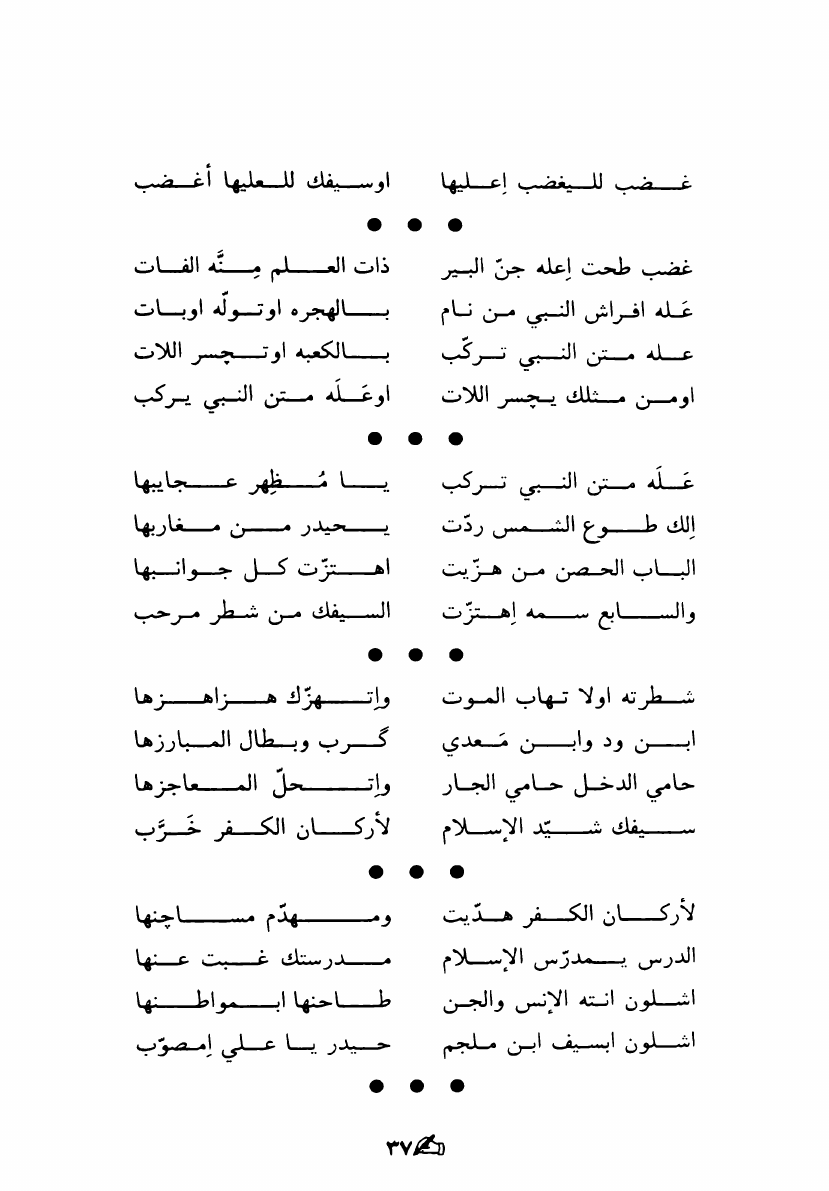 غضب لليغضب إعليها اوسيفك للعليها أغضب
● ● ●
غضب طحت إعله جنّ البير ذات العلم مِنَّه الفات
عَله افراش النبي من نام بالهجره اوتولّه اوبات
عله متن النبي تركّب بالكعبه اوتچسر اللات
اومن مثلك يچسر اللات اوعَلَه متن النبي يركب
● ● ●
عَلَه متن النبي تركب يا مُظِهر عجايبها
إلك طوع الشمس ردّت يحيدر من مغاربها
الباب الحصن من هزّيت اهتزّت كل جوانبها
والسابع سمه إهتزّت السيفك من شطر مرحب
● ● ●
شطرته اولا تهاب الموت وإتهزّك هزاهزها
ابن ود وابن مَعدي گرب وبطال المبارزها
حامي الدخل حامي الجار وإتحلّ المعاجزها
سيفك شيّد الإسلام لأركان الكفر خَرَّب
● ● ●
لأركان الكفر هدّيت ومهدّم مساچنها
الدرس يمدرّس الإسلام مدرستك غبت عنها
اشلون انته الإنس والجن طاحنها ابمواطنها
اشلون ابسيف ابن ملجم حيدر يا علي إمصوّب
● ● ●
٣٧